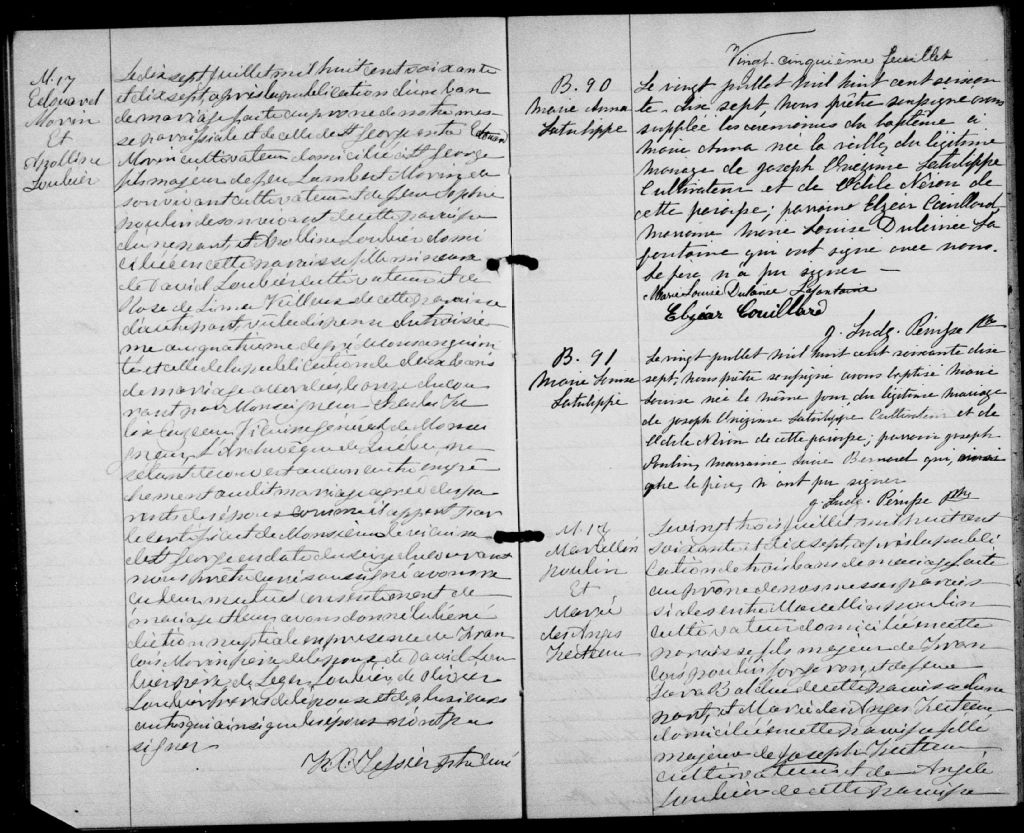 M. 17
Edouard
Morin
Et
Apolline
Loubier
Le dix sept juillet mil huit cent soixante
et dix sept, après la publication d'une ban
de mariage faite au prone de notre mes-
se paroissiale et de celle de St George entre Edouard
Morin cultivateur domicilié à St George
fils majeur de feu Lambert Morin de
son vivant cultivateur et de feue Sophie
Poulin de son vivant de cette paroisse
d'une part et Apolline Loubier domi
ciliée en cette paroisse fille mineure
de David Loubier cultivateur et de
Rose de Lima Veilleux de cette paroisse
d'autre part, vu la dispense du troisiè
me au quatrième degré de consanguin
ité et celle de la publication de deux bans
de mariage accordées le onze du cou
rant par Monseigneur Charles Fé
lix Cazeau Vicaire général de Monsei
gneur l'Archevêque de Québec, ne
s'étant découvert aucun autre empê
chement au dit mariage agréé des pa
rents des époux comme il appert par
le certificat de Monsieur le vicaire
de St George en date du seize du courant
nous prêtre curé soussigné avons reçu
leur mutuel consentement de
mariage et leur avons donné la béné
diction nuptiale en présence de Fran
çois Morin frère de l'époux, de David Lou
bier père, de Léger Loubier, de Olivier
Loubier frères de l'épouse et de plusieurs
autres qui ainsi que les époux n'ont pu
signer
Tessier ptre curé
Vingt-cinquième feuillet
B. 90
Marie Anna
Latulippe
Le vingt juillet mil huit cent soixan
te-dix sept nous prêtre soussigné avons
suppléé les cérémonies du baptême à
Marie Anna née la veille, du légitime
mariage de Joseph Onézime Latulippe
Cultivateur et de Odile Néron de
cette paroisse; parrain Elzéar Couillard
marraine Marie Louise Dulcinée La
fontaine qui ont signé avec nous.
Le père n'a pu signer —
Marie Louise Dulcinée Lafontaine
Elzear Couillard
J. Ludg. Ptre
B. 91
Marie Louise
Latulippe
Le vingt juillet mil huit cent soixante dix
sept, nous prêtre soussigné avons baptisé Marie
Louise née le même jour, du légitime mariage
de Joseph Onézime Latulippe Cultivateur et de
Odile Néron de cette paroisse; parrain Joseph
Poulin, marraine Bernard qui, ainsi
que le père, n'ont pu signer
J. Ludg. Ptre
M. 17
Marcellin
Poulin
Et
Marie
des Anges
Le vingt trois juillet mil huit cent
soixante et dix sept, après la publi
cation de trois bans de mariage faite
au prône de nos messes parois
siales entre Marcellin Poulin
cultivateur domicilié en cette
paroisse fils majeur de Fran
çois Poulin forgeron, et de feue
de cette paroisse d'une
part, et Marie des Anges
domiciliée en cette paroisse fille
majeure de Joseph
cultivateur et de Angèle
Loubier de cette paroisse